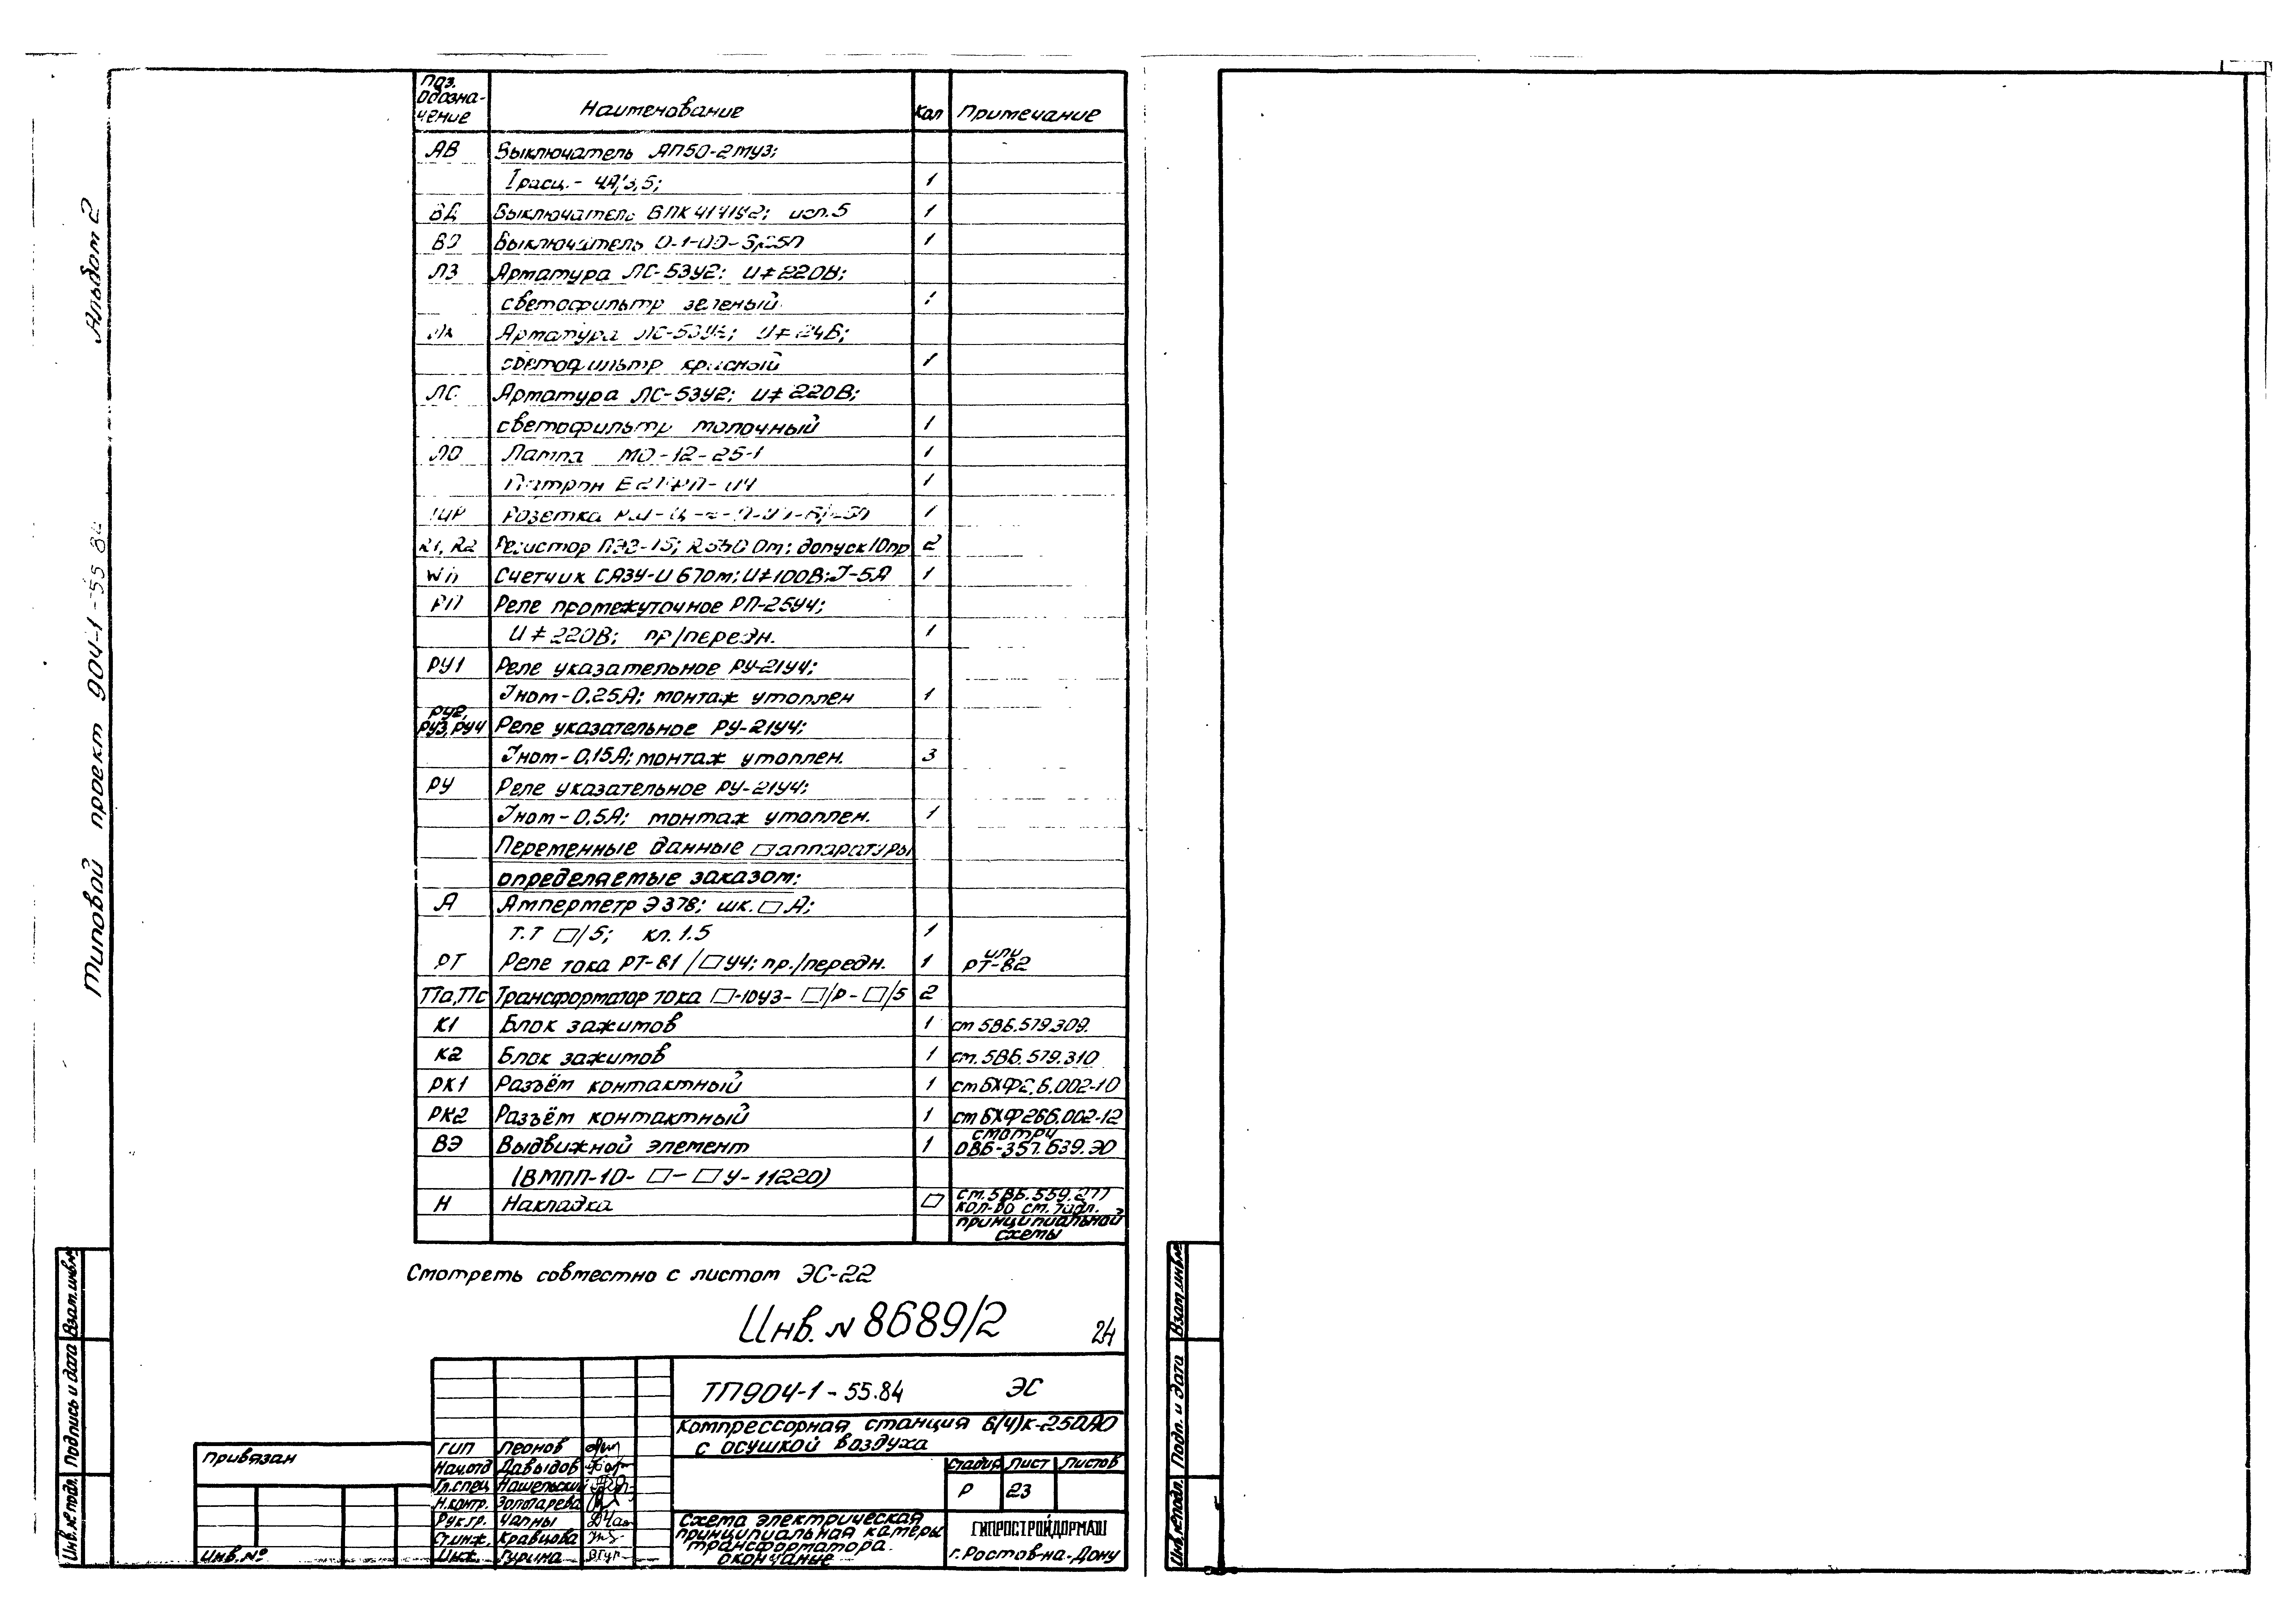 Альбом 2
Типовой проект 904-1-55.84
Поз. Обозна-чение Наименование Кол Примечание
АВ Выключатель АП50-2МУ3;
Iрасц.- 4А; 3,5; 1
ВД Выключатель исп. 5 1
Выключатель 1
ЛЗ Арматура ЛС-53У2; U≠220В;
светофильтр зеленый
ЛК Арматура ЛС-53У2; U≠24В;
светофильтр красный 1
ЛС Арматура ЛС-53У2; U≠220В;
светофильтр молочный 1
ЛО Лампа МО-12-25-1 1
Патрон 1
Розетка 1
R1, R2 Резистор ПЭВ-15; Ом; допуск 10пр 2
Wh Счетчик САЗУ-И670м; U≠100В; J-5А 1
РП Реле промежуточное РП-25У4;
U≠220В; пр/передн. 1
РУ1 Реле указательное РУ-21У4;
Jном-0,25А; монтаж утоплен 1
РУ2, РУ3, РУ4 Реле указательное РУ-21У4;
Jном-0,15А; монтаж утоплен. 3
РУ Реле указательное РУ-21У4;
Jном-0,5А; монтаж утоплен. 1
Переменные данные □ аппаратуры
определяемые заказом:
А Амперметр Э378; шк. □ А;
т.т □/5; кл. 1.5 1
РТ Реле тока РТ-81/□У4; пр./передн. 1 или РТ-82
ТТа, ТТс Трансформатор тока □-10У3-□/Р-□/5 2
К1 Блок зажимов 1 см 5ВБ.579.309.
К2 Блок зажимов 1 см. 5ВБ.579.310
РК1 Разъём контактный 1 см БХФ2.6.002-10
РК2 Разъём контактный 1 см БХФ266.002-12
ВЭ Выдвижной элемент 1 смотри ОВБ-357.639.ЭО
(ВМПП-10-□-□У-11220)
Н Накладка □ см. 5ВБ.559.277
кол-во см. табл.
принципиальной
схемы
Смотреть совместно с листом ЭС-22
Инв. N 8689/2 24
ТП904-1-55.84 ЭС
Компрессорная станция 6(4)К-250АО
с осушкой воздуха
Привязан
Инв. №
ГИП Леонов
Нач.отд Давыдов
Гл.спец Нашельский
Н.контр. Золотарева
Рук.гр. Чапны
Ст.инж. Кравцова
Инж. Гурина
Стадия Лист Листов
Р 23
Схема электрическая
принципиальная камеры
трансформатора.
окончание
ГИПРОСТРОЙДОРМАШ
г.Ростов-на-Дону
Инв.№подл. Подпись и дата Взам.инв.№
Инв.№подл. Подп. и дата Взам.инв.№